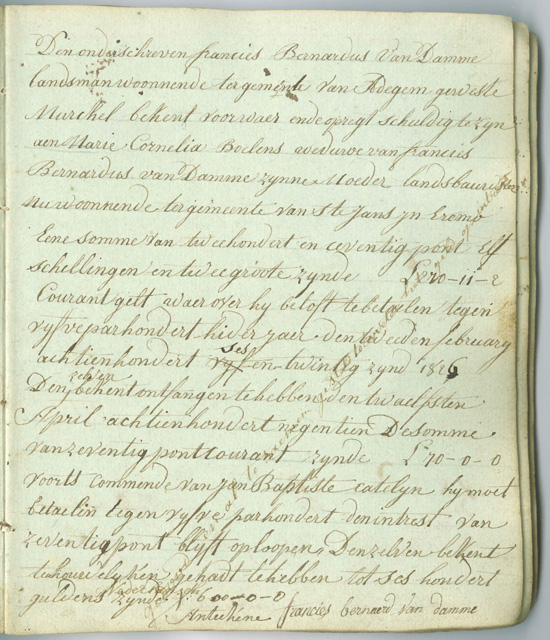 Den onderschreven francies Bernardus Van Damme
landsman woonnende ter gemeente van Adegem geweste
Murckel bekent voor waer ende opregt schuldig te zyn
aen Marie Cornelia Boelens weduwe van francies
Bernardus van Damme zynne Moeder landsbauresse
nu woonnende ter gemeente van Ste Jans jn Eremo
Eene somme van tweehondert en ceventig pont Elf
schellingen en twee groote zynde £ 270-11-2
Courant gelt waer over hy beloft te betaelen tegen
vyfve par hondert hider jaer den tweeden february
achtienhondert vyf ses en twintig zynd 1826
Den zelven bekent ontfangen te hebben den twaelfsten
April achtienhondert negentien De somme
van zeventig pont courant zynde £ 70-0-0
voorts commende van Jan Baptiste catelyn hy moet
betaelen tegen vyfve par hondert den intrest van
zeventig pont blyft oploopen, Den zelven bekent
te houwelyken gehadt te hebben tot ses hondert
guldens zynde £ 600-0-0
Anteekene francies bernaerd van damme